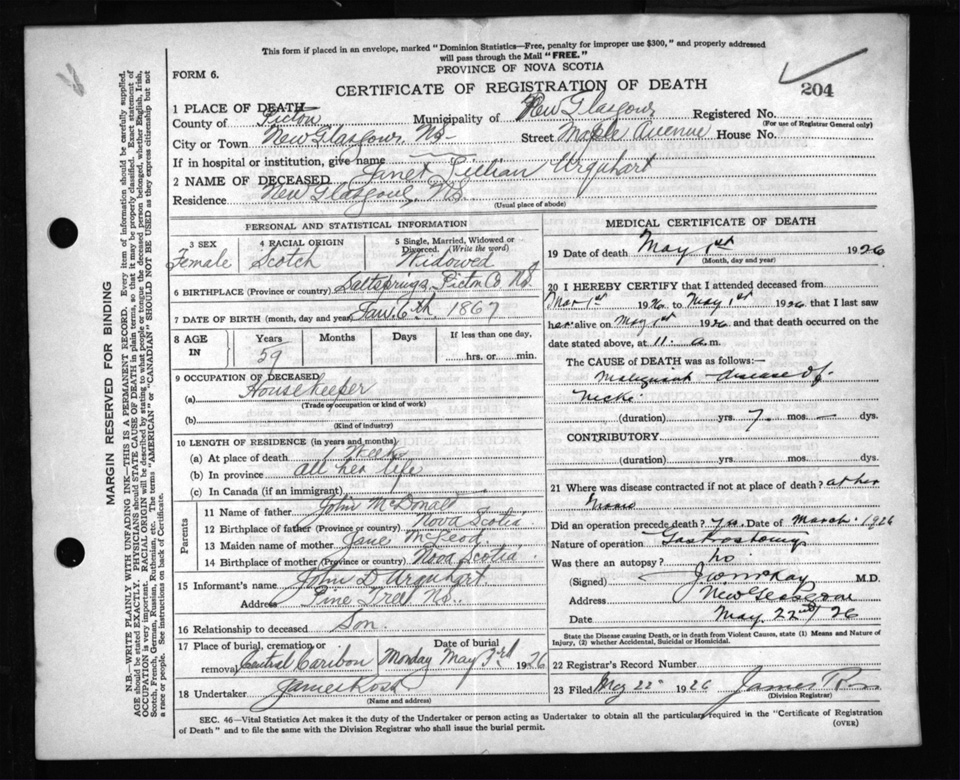 This form if placed in an envelope, marked "Dominion Statistics—Free, penalty for improper use $300," and properly addressed
will pass through the Mail "FREE."
FORM 6.
PROVINCE OF NOVA SCOTIA
CERTIFICATE OF REGISTRATION OF DEATH
204
1 PLACE OF DEATH
County of Pictou Municipality of New Glasgow Registered No.
(For use of Registrar General only)
City or Town New Glasgow, NS- Street Maple Avenue House No.
If in hospital or institution, give name
2 NAME OF DECEASED Janet Lillian Urquhart
Residence New Glasgow, NS.
(Usual place of abode)
PERSONAL AND STATISTICAL INFORMATION
3 SEX 4 RACIAL ORIGIN 5 Single, Married, Widowed or Divorced. (Write the word)
Female Scotch Widowed
6 BIRTHPLACE (Province or country) Saltsprings, Pictou Co NS.
7 DATE OF BIRTH (month, day and year) Jan. 6th 1867
8 AGE IN Years Months Days If less than one day,
59 hrs. or min.
9 OCCUPATION OF DECEASED
(a) Housekeeper
(Trade of occupation or kind of work)
(b)
(Kind of industry)
10 LENGTH OF RESIDENCE (in years and months)
(a) At place of death Week
(b) In province all her life
(c) In Canada (if an immigrant)
Parents
11 Name of father John McDonald
12 Birthplace of father (Province or country) Nova Scotia
13 Maiden name of mother Jane McLeod
14 Birthplace of mother (Province or country) Nova Scotia
15 Informant's name John D Urquhart
Address Pine Tree NS..
16 Relationship to deceased Son.
17 Place of burial, cremation or removal Date of burial
Central Caribou Monday May 3rd 1926
18 Undertaker James Ross
(Name and address)
MEDICAL CERTIFICATE OF DEATH
19 Date of death May 1st 1926
(Month, day and year)
20 I HEREBY CERTIFY that I attended deceased from
Mar 1st 1926 to May 1st 1926 that I last saw
her alive on May 1st 1926 and that death occurred on
the date stated above, at 11. a.m.
The CAUSE of DEATH was as follows:—
Malignant disease of
neck.
(duration) yrs. 7 mos. — dys.
CONTRIBUTORY
(duration) yrs. mos. dys.
21 Where was disease contracted if not at place of death? at her
home
Did an operation precede death? Yes. Date of March. 1926
Nature of operation Gastrostomy
Was there an autopsy? no
(Signed) M.D.
Address New Glasgow
Date May 22nd/26
State the Disease causing Death, or in death from Violent Causes, state (1) Means and Nature of
Injury, (2) whether Accidental, Suicidal or Homicidal.
22 Registrar's Record Number
23 Filed May 22 1926 James
(Division Registrar)
SEC. 46—Vital Statistics Act makes it the duty of the Undertaker or person acting as Undertaker to obtain all the particulars required in the "Certificate of Registration
of Death" and to file the same with the Division Registrar who shall issue the burial permit.
(OVER)
MARGIN RESERVED FOR BINDING
N.B.—WRITE PLAINLY, WITH UNFADING INK—THIS IS A PERMANENT RECORD. Every item of information should be carefully supplied.
AGE should be stated EXACTLY. PHYSICIANS should STATE CAUSE OF DEATH in plain terms, so that it may be properly classified. Exact statement of
OCCUPATION is very important. RACIAL ORIGIN will be described by stating to what people or tongue the deceased person belonged, whether English, Irish,
Scotch, French, German, Russian, Ruthenian, etc. The terms "AMERICAN" or "CANADIAN" SHOULD NOT BE USED as they express citizenship but not
a race or people. See instructions on back of Certificate.